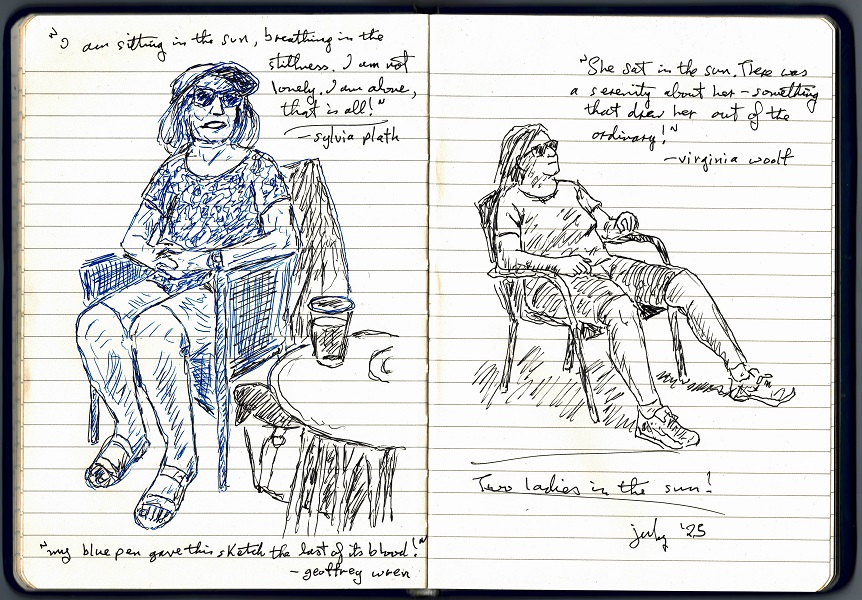 "I am sitting in the sun, breathing in the
stillness. I am not
lonely. I am alone,
that is all!"
- sylvia plath
"my blue pen gave this sketch the last of its blood!"
- geoffrey wren
"She sat in the sun. There was
a serenity about her - something
that drew her out of the
ordinary!"
- virginia woolf
Two ladies in the sun!
july '25